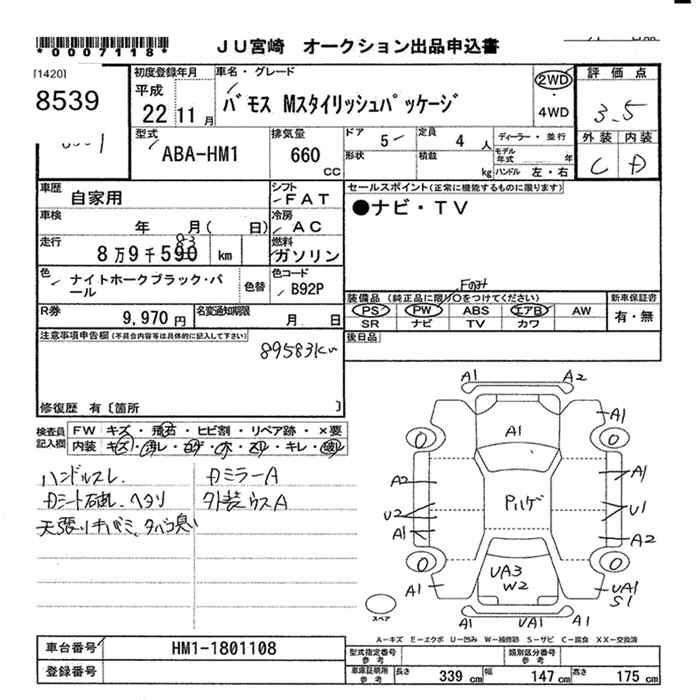 *0007118*
JU宮崎 オークション出品申込書
[1420]
8539
初度登録年月
平成
22年 11月
車名・グレード
バモス Mスタイリッシュパッケージ
2WD
・
4WD
評価点
3.5
外装 内装
C D
型式
ABA-HM1
排気量
660 CC
ドア 5
定員 4 人
ディーラー・並行
形状
積載 kg
モデル年式 年
ハンドル 左・右
車歴 自家用
シフト FAT
セールスポイント(正常に機能するものに限ります)
●ナビ・TV
車検 年 月( 日)
冷房 AC
走行 8万9千590 km
83
燃料 ガソリン
色 ナイトホークブラック・パール
色替
色コード B92P
Fのみ
装備品 (純正品に限り〇をつけてください)
新車保証書
PS PW ABS エアB AW
SR ナビ TV カワ
有・無
R券 9,970円
名変通知期限 月 日
後日品
注意事項申告欄(不具合内容等は具体的に記入して下さい)
89583km
修復歴 有〔箇所 〕
検査員記入欄
FW キズ・飛石・ヒビ割・リペア跡・×要
内装 キズ・ヨゴレ・コゲ・穴・スリ・キレ・破レ
ハンドルスレ
カミラーA
Dシート破レ、ヘタリ
外装ウスA
天張りキバミ、タバコ臭い
A1 A2
A1 A1
A2 A1
Pハゲ
U2 U1
A1 A2
UA3
W2
A1 UA1
S1
A1 UA1 A1
スペア
A-キズ E-エクボ U-凹み W-補修跡 S-サビ C-腐食 XX-交換済
車台番号 HM1-1801108
型式指定番号 参考
類別区分番号 参考
登録番号
車庫証明用 参考
長さ 339 cm 幅 147 cm 高さ 175 cm